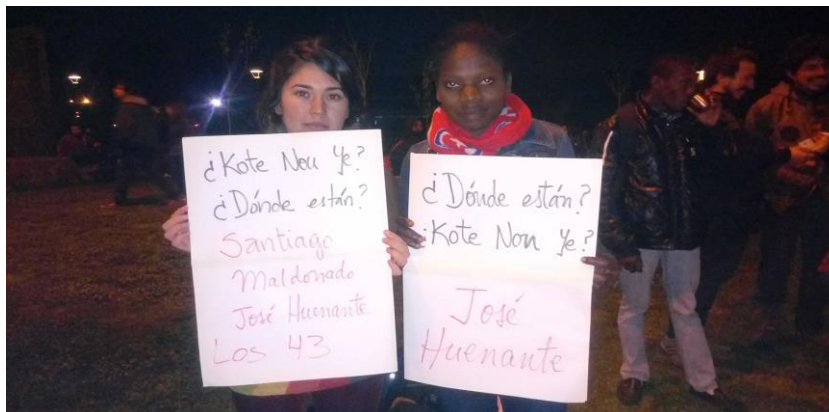 ¿Kote Nou Ye?
¿Dónde están?
Santiago
Maldonado
José Huenante
Los 43
¿Dónde están?
¿Kote Nou Ye?
José
Huenante